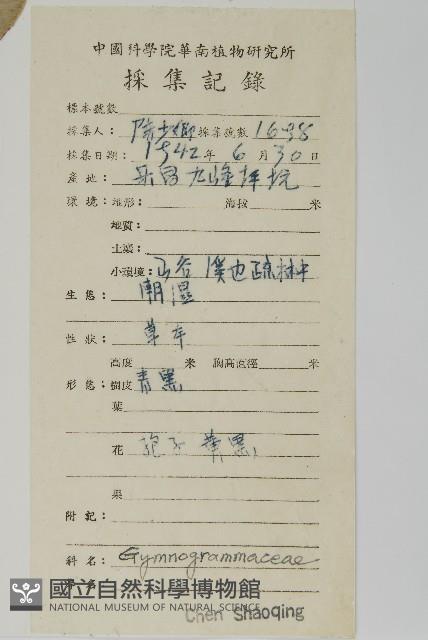 中國科學院華南植物研究所
採集記錄
標本號數
採集人：陳少卿 採集號數 1698
採集日期：1942年6月30日
產地：樂昌九峰坪坑
環境：地形： 海拔 米
地質：
土壤：
小環境：山谷 疏林中
生態：潮濕
性狀：草本
高度 米 胸高直徑 米
形態：樹皮 青黑
葉
花 孢子 黑
果
附記：
科名：Gymnogrammaceae
國立自然科學博物館
NATIONAL MUSEUM OF NATURAL SCIENCE
Chen Shaoqing